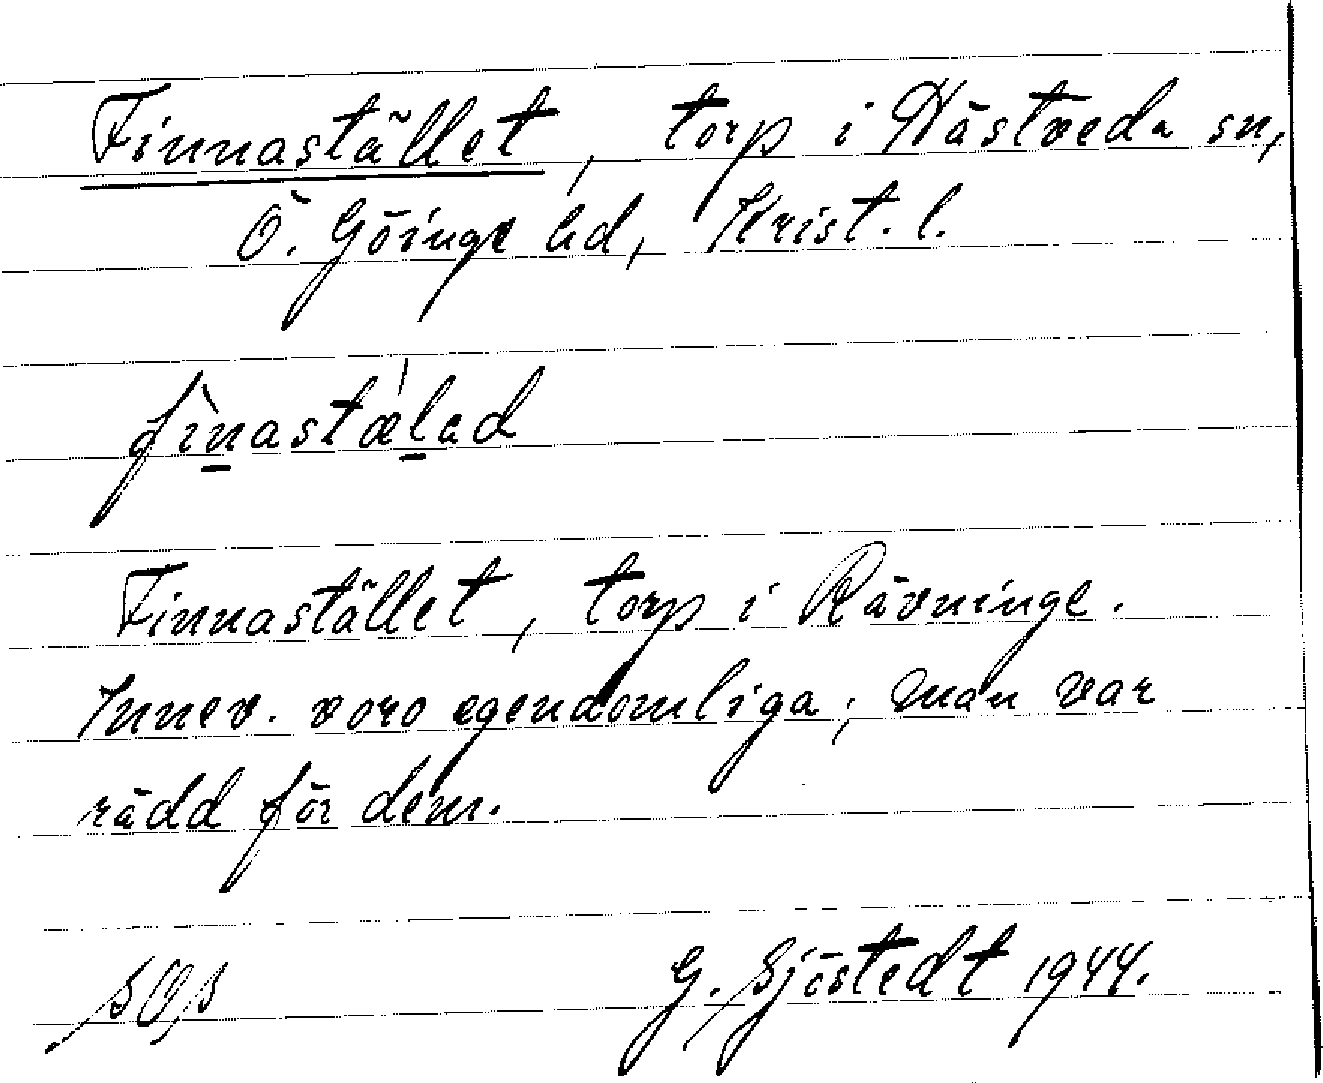 Finnastället, torp i Hästveda sn,
Ö. Göinge hd, Krist. l.
fìnastǽlad
Finnastället, torp i Rävninge.
Innev. voro egendomliga; man var
rädd för dem.
SOS G. Sjöstedt 1944.